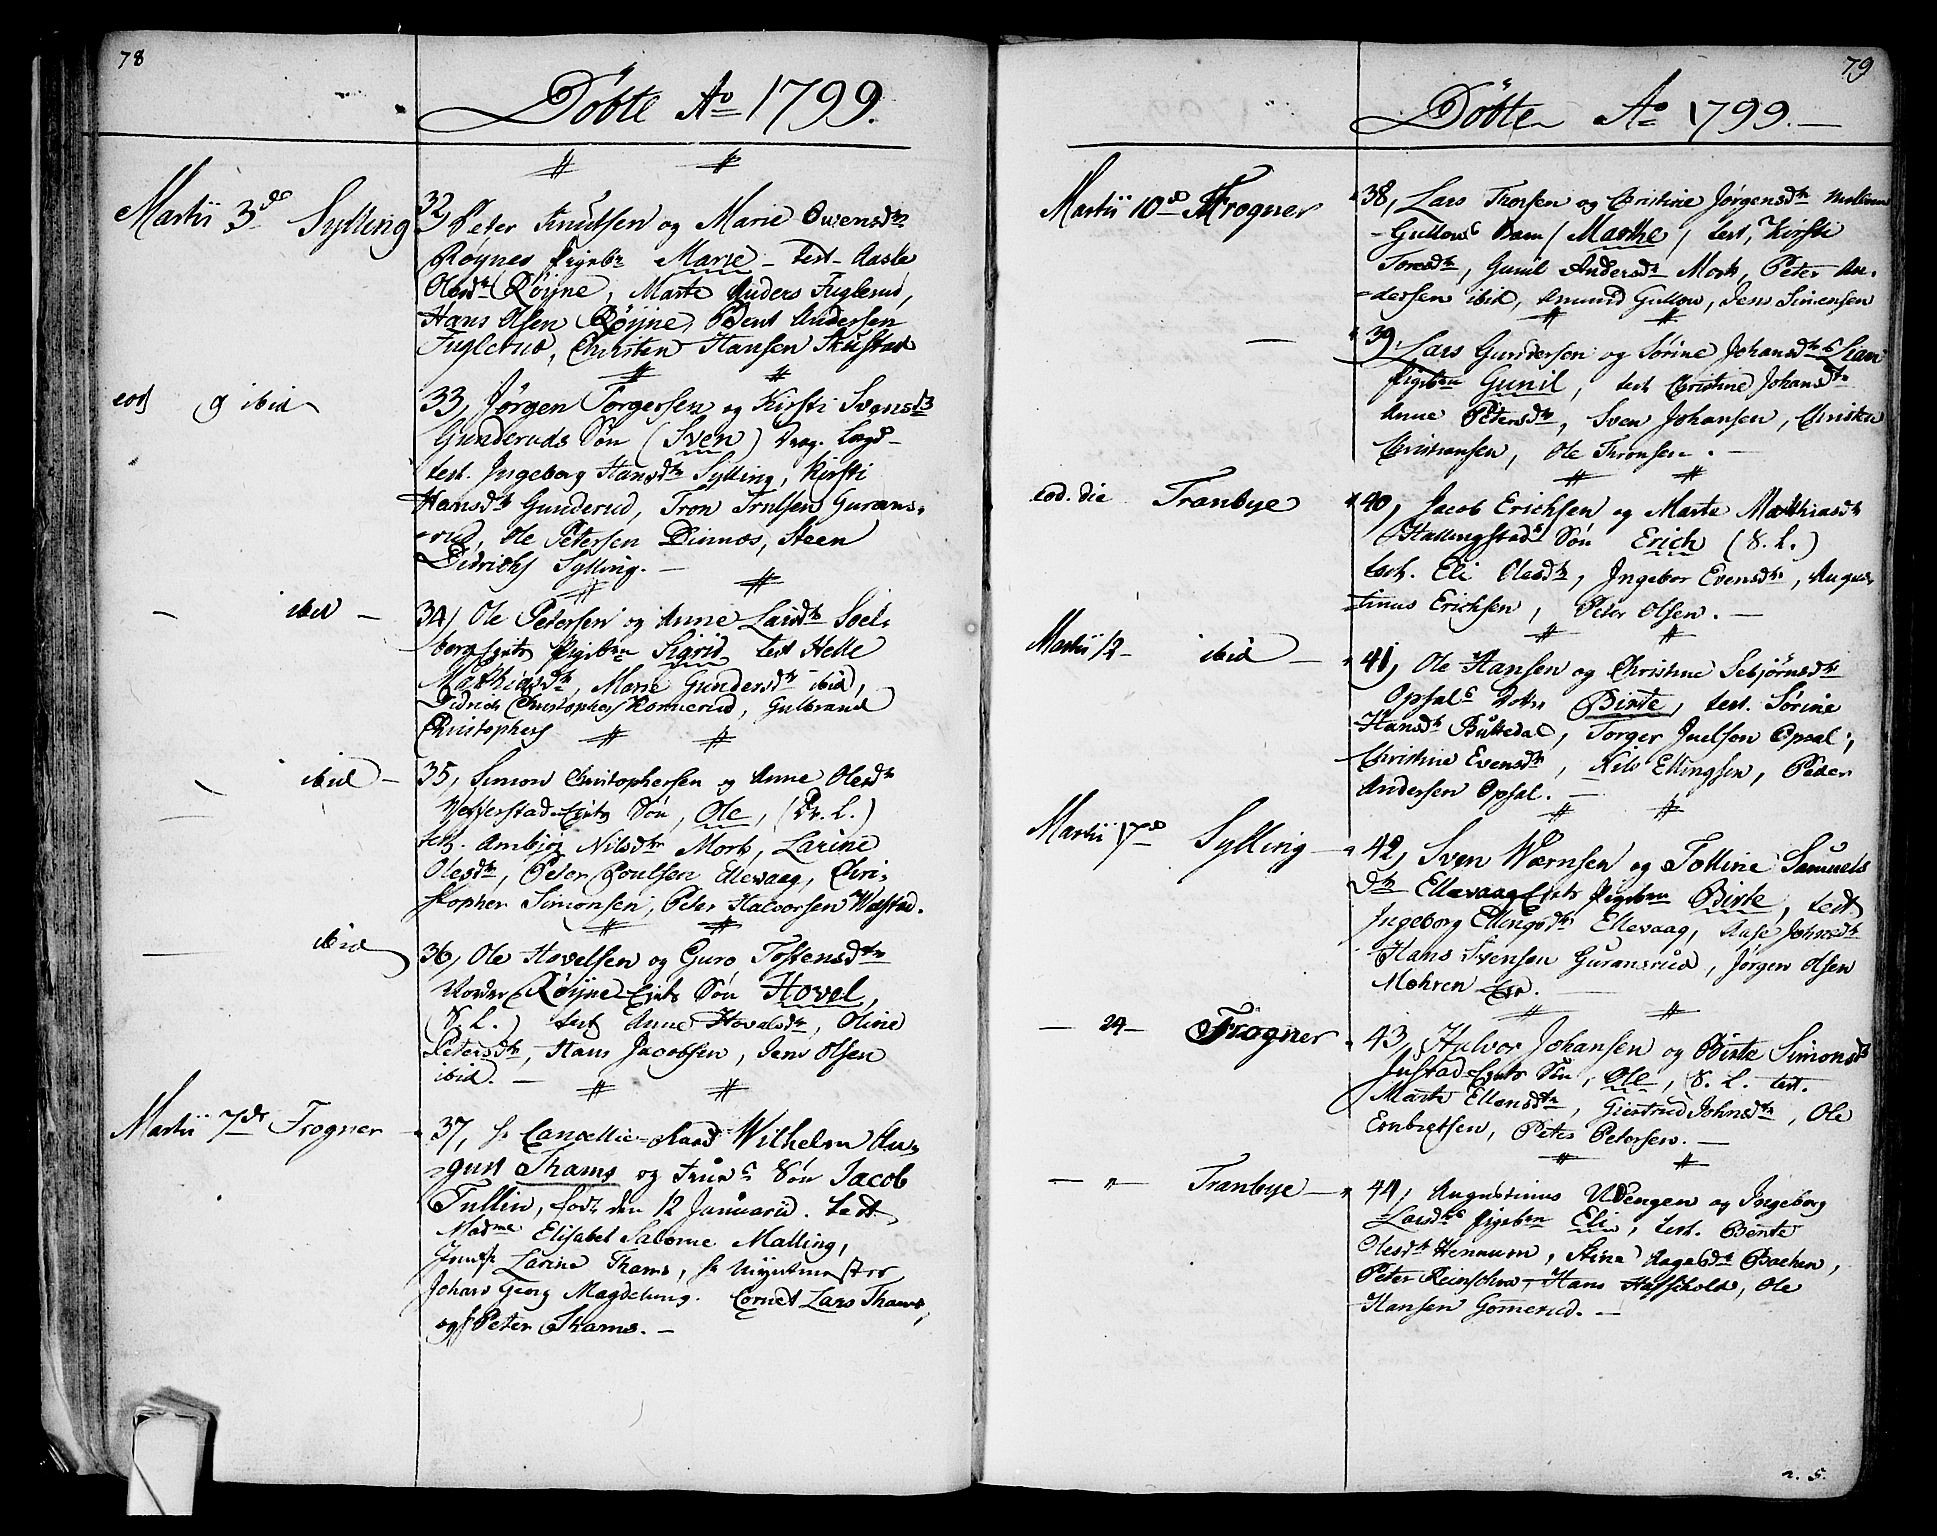 78
Döbte Ao 1799.
Martii 3de Sylling
32, Peter Knutsen og Marie Owensdtr
Røynes Pigebn Marie – test – Aasle
Olesdtr Røijne, Marte Anders Fuglerud,
Hans Olsen Røijne, Bent Andersen
Fuglerud, Christen Hansen Skustad
eod og ibid
33, Jörgen Torgersen og Kirsti Svensd
Gunderuds Sön (Sven) Drag. Lægd –
test. Ingeborg Hansdtr Sylling, Kirsti
Hansdtr Gunderud, Tron Trulsen Gurans-
rud, Ole Petersen Dinnæs, Steen
Didrichs Sylling. –
– ibid –
34, Ole Petersen og Anne Larsdtr Soel-
berg Pigebn Sigrid test Helle
Mathiasdtr, Marie Gundersdtr ibid,
Didrich Christophers Hornerud, Gulbrand
Christophers
– ibid –
35, Simon Christophersen og Anne Olesdtr
Sön, Ole, (Dr. L.)
test. Ambjør Nilsdtr Mork, Larine
Olesdtr, Peter Poulsen Ellevaag, Chri-
stopher Simonsen, Peter Halvorsen Wæstad.
– ibid
36, Ole Hovelsen og Guro Tostensdtr
Røijne Sön Hovel,
(S. L.) test Anne Hovelsdtr, Oline
Petersdtr, Hans Jacobsen, Jens Olsen
ibid. –
Martii 7de Frogner –
37, hr Cancellie-Raad Wilhelm Au-
gust Thams og Frues Sön Jacob
Tullin, fodt den 12 Januarii. test.
Madme Elisabet Salome Malling,
Jomfr Larine Thams, hr
Johan Georg Magdelung. Cornet Lars Thams,
og Peter Thams. –
79
Döbte Ao 1799. –
Martii 10de Frogner
38, Lars Thorsen og Christine Jørgensdtr
Gullous Barn (Marthe) test, Kirsti
Toresdtr, Gunil Andersdtr Mork, Peter An-
dersen ibid, Amund Gullow, Jens Simensen
–
39, Lars Gundersen og Sörine Johansdtr Lian
Pigebn Gunil, test Christine Johansdtr
Anne Petersdtr, Sven Johansen, Christen
Christiansen, Ole Thronsen. –
eod. die Tranbye
40, Jacob Erichsen og Marte Mathiasdtr
Hallingstads Sön Erich (S. L.)
test. Eli Olesdtr, Ingebor Evensdtr, Augus-
tinus Erichsen, Peter Olsen. –
Martii 12 – ibid –
41, Ole Hansen og Christine Sebjörnsdtr
Opsals Dotr, Birte, test. Sörine
Hansdtr Buttedal, Torger Juelsen Opsal,
Christine Evensdtr, Nils Ellingsen, Peder
Andersen Opsal. –
Martii 17de Sylling –
42, Sven Wærnsen og Tolline Samuels
dtr Ellevaag Pigebn Birte, test
Ingeborg Ellingsdtr Ellevaag, Aase Johnsdtr
Hans Svensen Guransrud, Jörgen Olsen
Mohren
– 24 – Frogner
43, Halvor Johansen og Birte Simonsd
Justad Sön, Ole, S. L. test.
Marte Ellensdtr, Giertrud Johnsdtr, Ole
Enbretsen, Peter Petersen. –
– " – Tranbye –
44, Augustinus Wengen og Ingeborg
Larsdtrs Pigebn Eli, test. Bente
Olesdtr Hennum, Stine Aagesdtr Bachen,
Peter Reinskou, Hans Hasskold, Ole
Hansen Gomerud. –
n. 5.